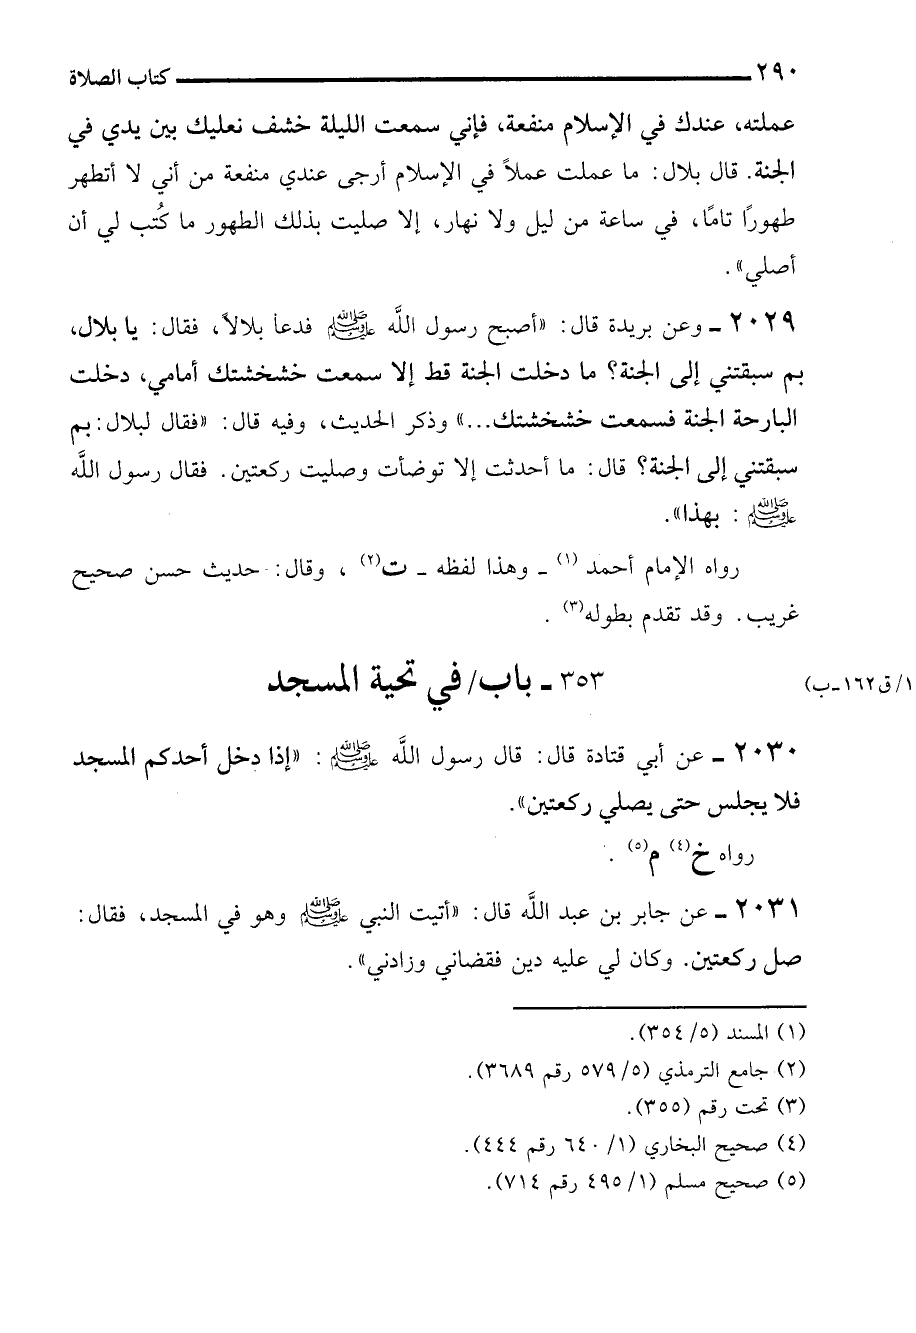 ٢٩٠ كتاب الصلاة
عملته، عندك في الإسلام منفعة، فإني سمعت الليلة خشف نعليك بين يدي في
الجنة. قال بلال: ما عملت عملاً في الإسلام أرجى عندي منفعة من أني لا أتطهر
طهورًا تامًا، في ساعة من ليل ولا نهار، إلا صليت بذلك الطهور ما كُتب لي أن
أصلي».
٢٠٢٩ ـ وعن بريدة قال: «أصبح رسول اللَّه ﷺ فدعا بلالاً، فقال: يا بلال،
بم سبقتني إلى الجنة؟ ما دخلت الجنة قط إلا سمعت خشخشتك أمامي، دخلت
البارحة الجنة فسمعت خشخشتك...» وذكر الحديث، وفيه قال: «فقال لبلال: بم
سبقتني إلى الجنة؟ قال: ما أحدثت إلا توضأت وصليت ركعتين. فقال رسول اللَّه
ﷺ: بهذا».
رواه الإمام أحمد (١) ـ وهذا لفظه ـ ت(٢)، وقال: حديث حسن صحيح
غريب. وقد تقدم بطوله(٣).
٣٥٣ ـ باب/ في تحية المسجد ١/ق١٦٢ـب)
٢٠٣٠ ـ عن أبي قتادة قال: قال رسول اللَّه ﷺ: «إذا دخل أحدكم المسجد
فلا يجلس حتى يصلي ركعتين».
رواه خ(٤) م(٥).
٢٠٣١ ـ عن جابر بن عبد اللَّه قال: «أتيت النبي ﷺ وهو في المسجد، فقال:
صل ركعتين. وكان لي عليه دين فقضاني وزادني».
(١) المسند (٣٥٤/٥).
(٢) جامع الترمذي (٥٧٩/٥ رقم ٣٦٨٩).
(٣) تحت رقم (٣٥٥).
(٤) صحيح البخاري (٦٤٠/١ رقم ٤٤٤).
(٥) صحيح مسلم (٤٩٥/١ رقم ٧١٤).